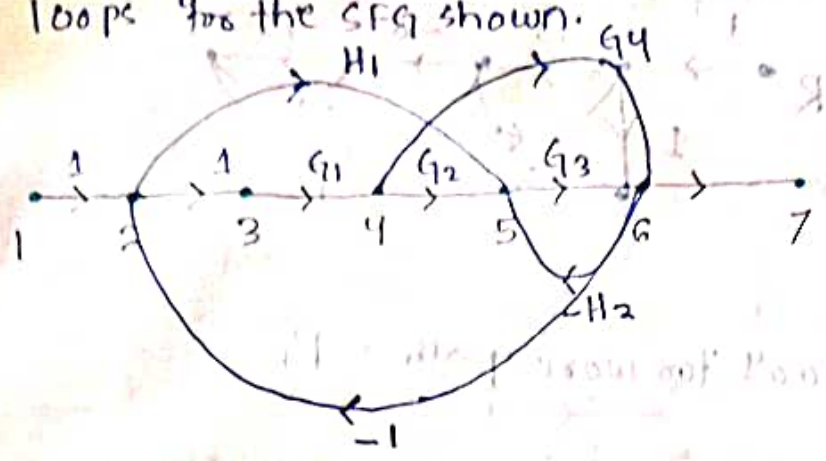 loops for the SFG shown.
H1
G4
1
1
G1
G2
G3
1
1
2
3
4
5
6
7
-H2
-1